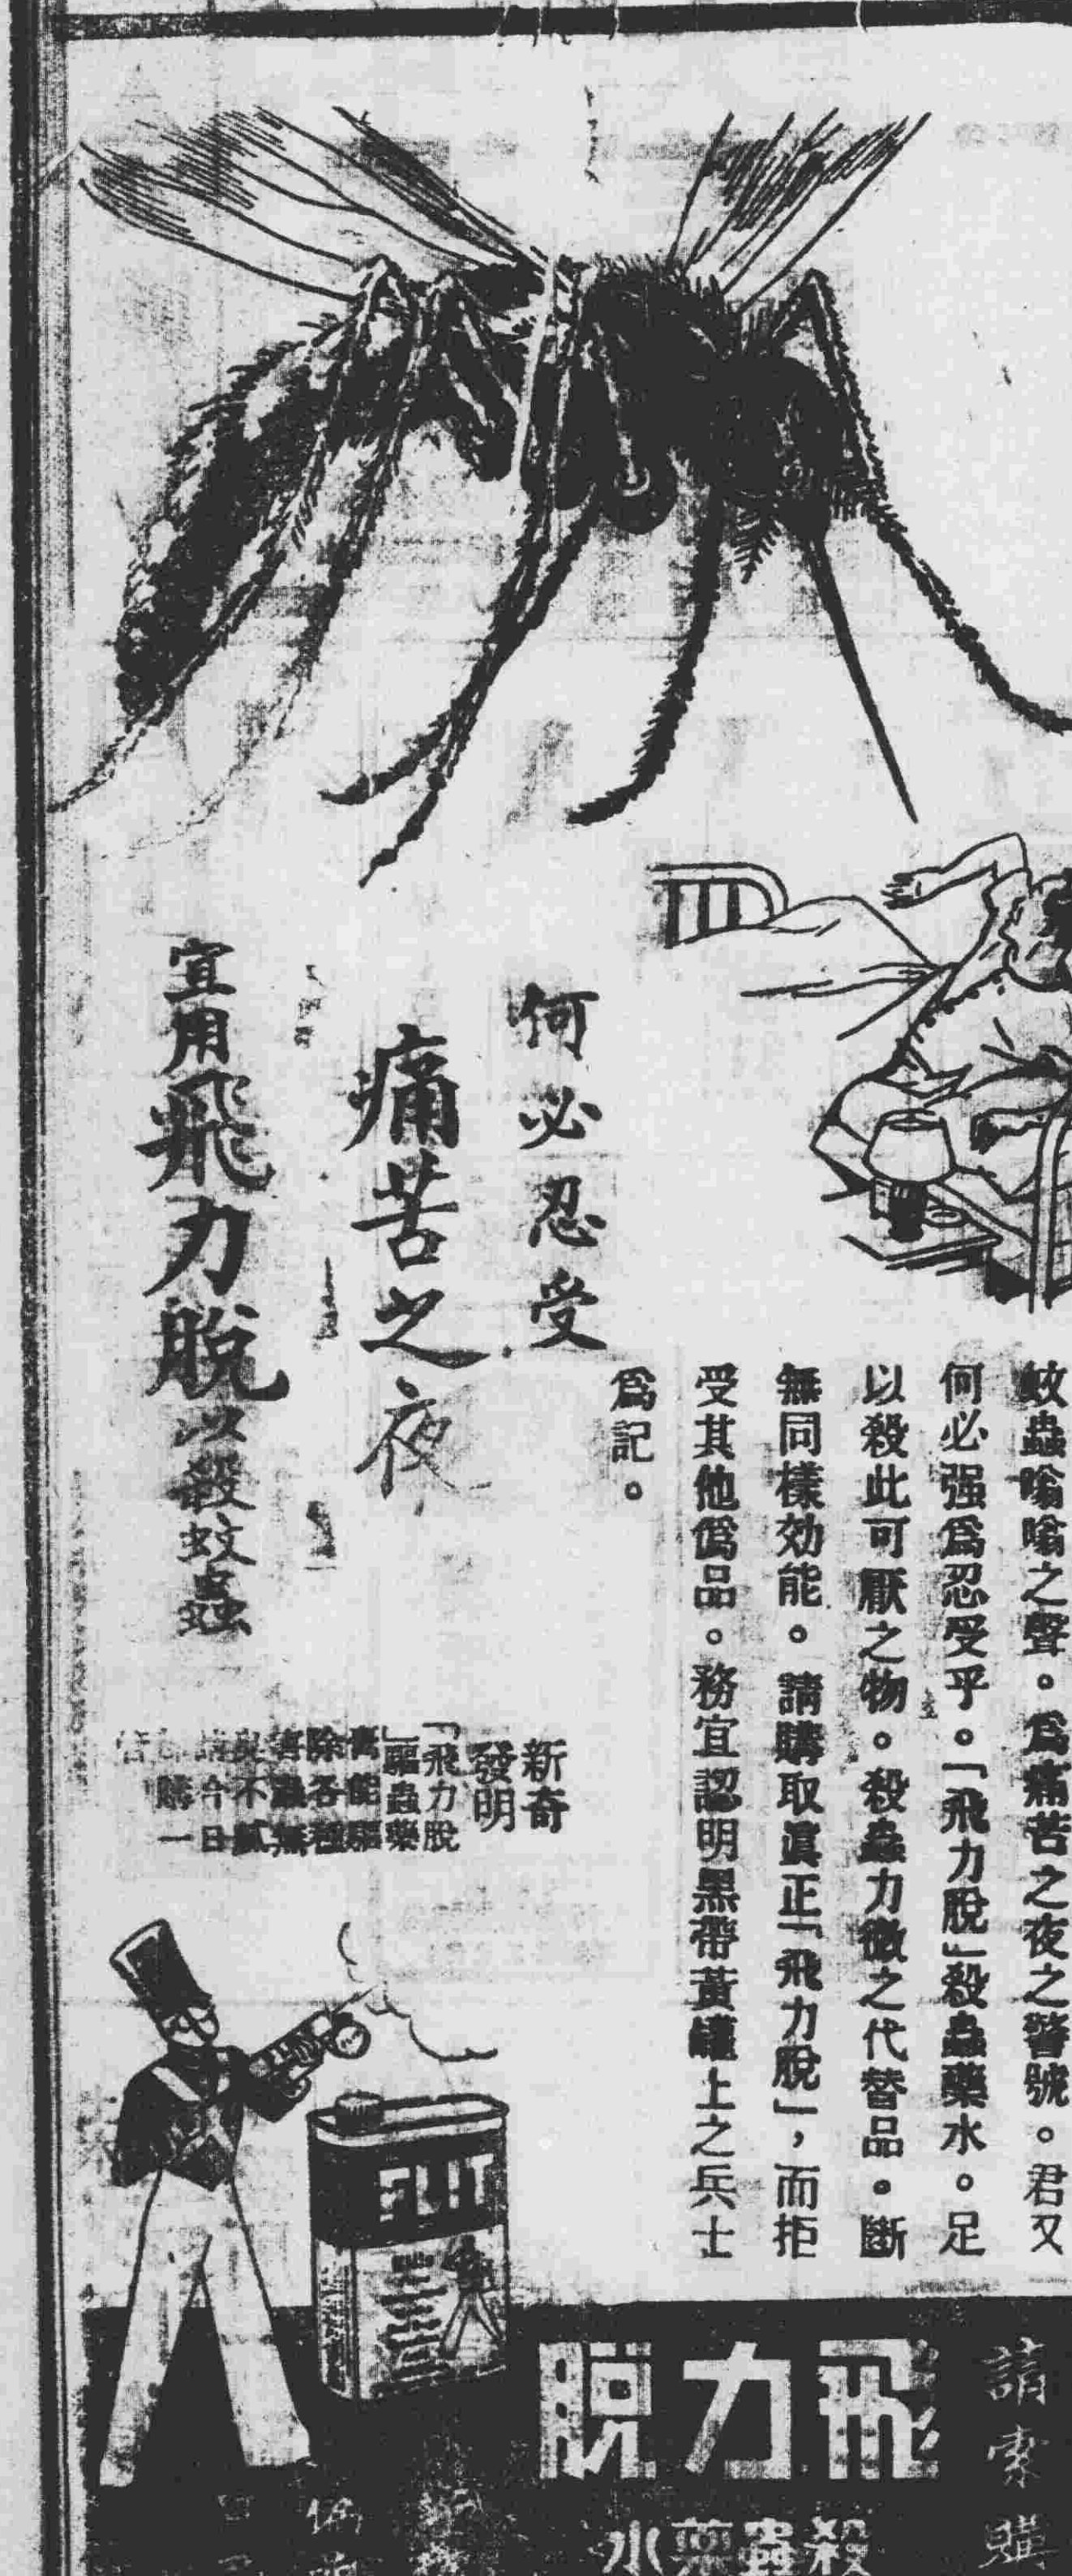 何必忍受
痛苦之夜
宜用飛力脫以殺蚊蟲
蚊蟲嗡嗡之聲。爲痛苦之夜之警號。君又
何必强爲忍受乎。「飛力脫」殺蟲藥水。足
以殺此可厭之物。殺蟲力微之代替品。斷
無同樣効能。請購取眞正「飛力脫」，而拒
受其他僞品。務宜認明黑帶黃罐上之兵士
爲記。
新奇
發明
「飛力脫
」驅蟲藥
能驅
除各種
害蟲無
不
請今日
購一
FLIT
請索購
飛力脫
殺蟲藥水